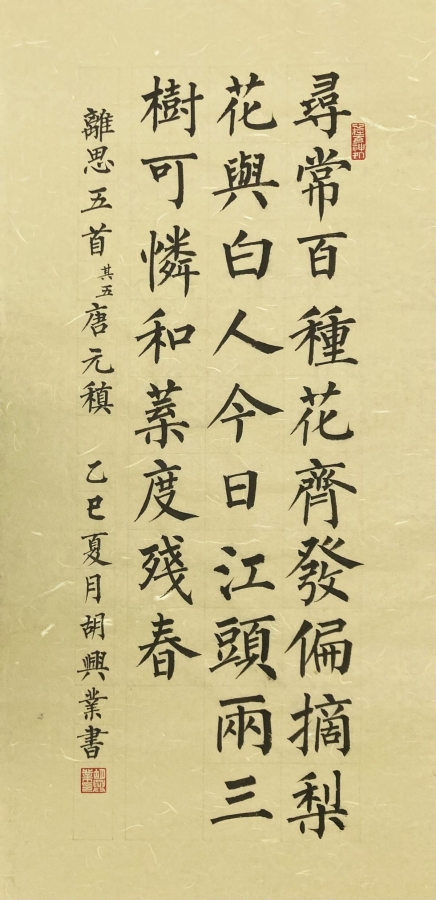 尋常百種花齊發偏摘梨
花與白人今日江頭兩三
樹可憐和葉度殘春
離思五首其五唐元稹 乙巳夏月胡興業書